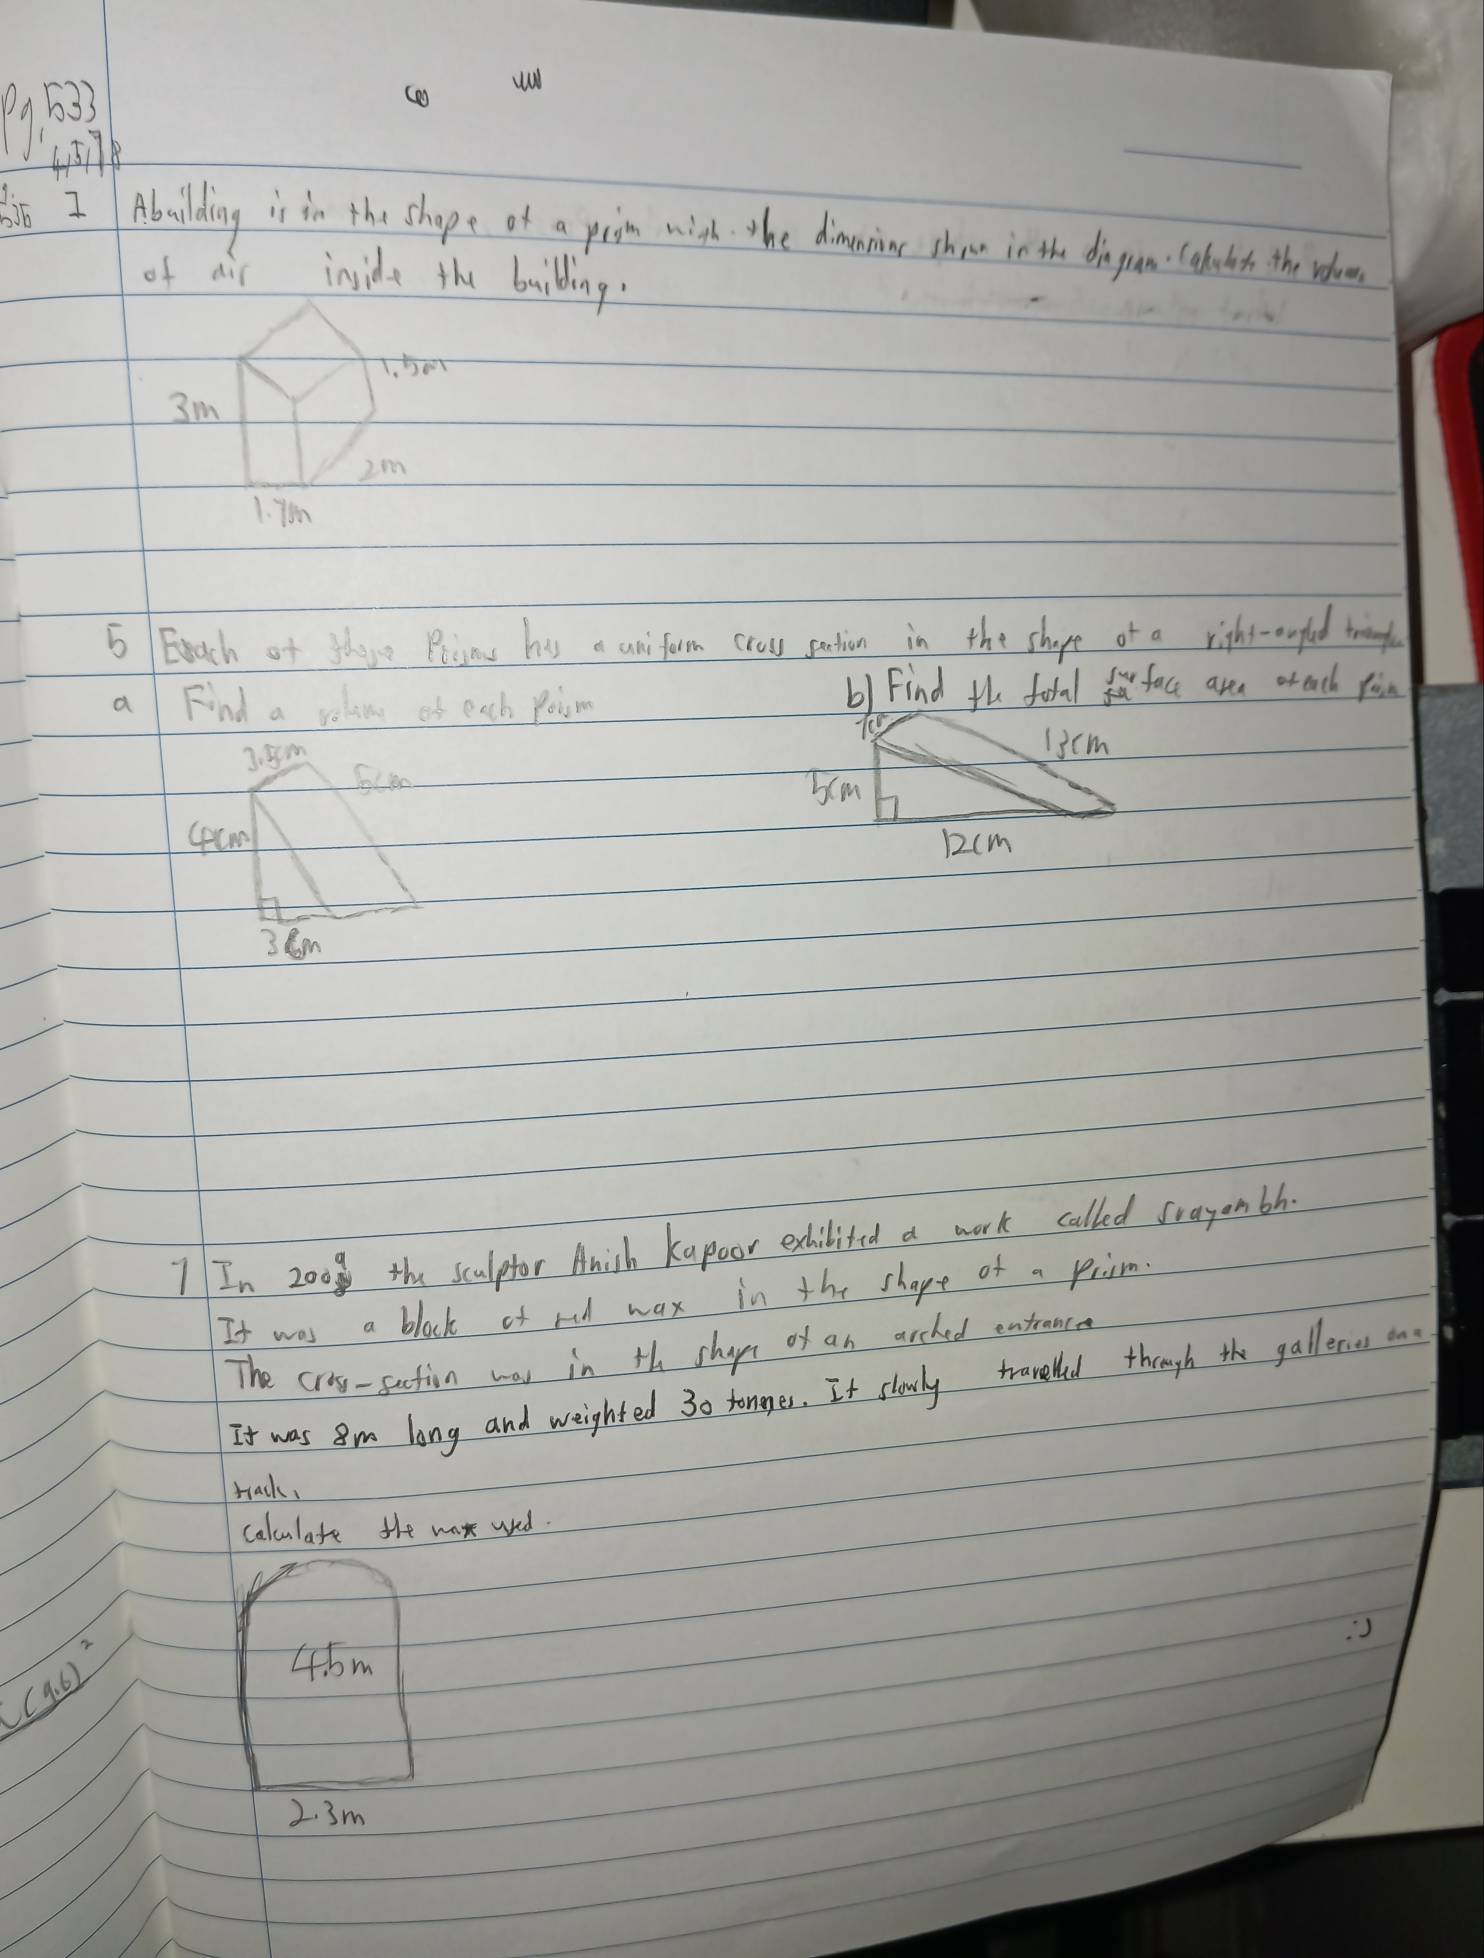 Pg. 533
4,5,7,8
I A building is in the shape of a prism with the dimensions shown in the diagram. Calculate the volume
of air inside the building.
1.5m
3m
2m
1.7m
5 Each of these Prisms has a uniform cross section in the shape of a right-angled triangle
a Find a volume of each Prism
b) Find the total surface area of each prism
3.5cm
5cm
4cm
3cm
13cm
5cm
12cm
7 In 2009 the sculptor Anish Kapoor exhibited a work called Svayambh.
It was a block of red wax in the shape of a Prism.
The cross-section was in th shape of an arched entrance
It was 8m long and weighted 30 tonnes. It slowly travelled through the galleries on a
track.
Calculate the wax used.
4.5m
2.3m
:)
(9.6)²